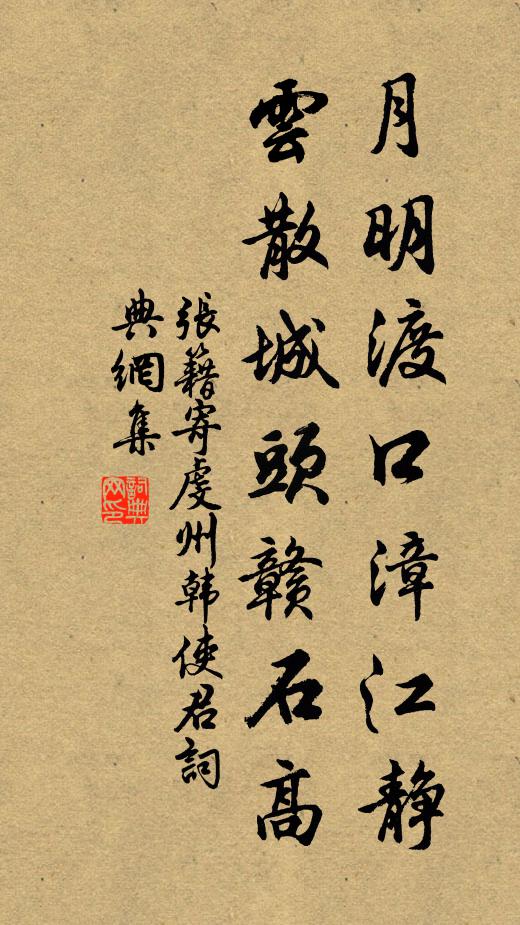 月明渡口漳江静
雲散城頭赣石高
張籍寄虔州韩使君詞
典網集
詞典
网印